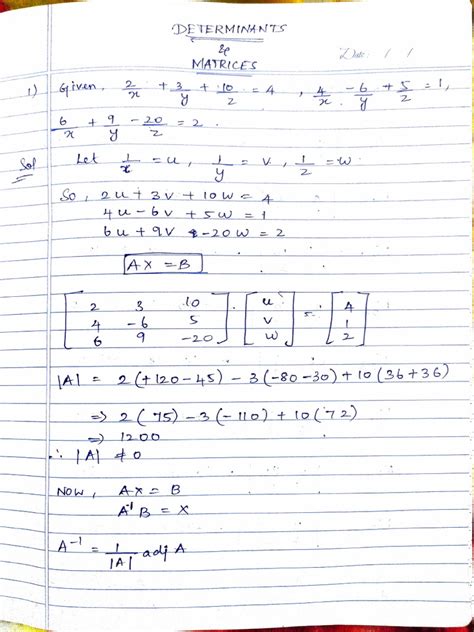 DETERMINANTS
&
MATRICES
Date: / /
1) Given, 2/x + 3/y + 10/z = 4 , 4/x - 6/y + 5/z = 1,
6/x + 9/y - 20/z = 2.
Sol Let 1/x = u, 1/y = v, 1/z = w
So, 2u + 3v + 10w = 4
4u - 6v + 5w = 1
6u + 9v - 20w = 2
AX = B
[2 3 10] . [u] = [4]
[4 -6 5] [v] [1]
[6 9 -20] [w] [2]
|A| = 2(+120-45) - 3(-80-30) + 10(36+36)
⇒ 2(75) - 3(-110) + 10(72)
⇒ 1200
∴ |A| ≠ 0
Now, AX = B
A⁻¹B = X
A⁻¹ = 1/|A| adj A